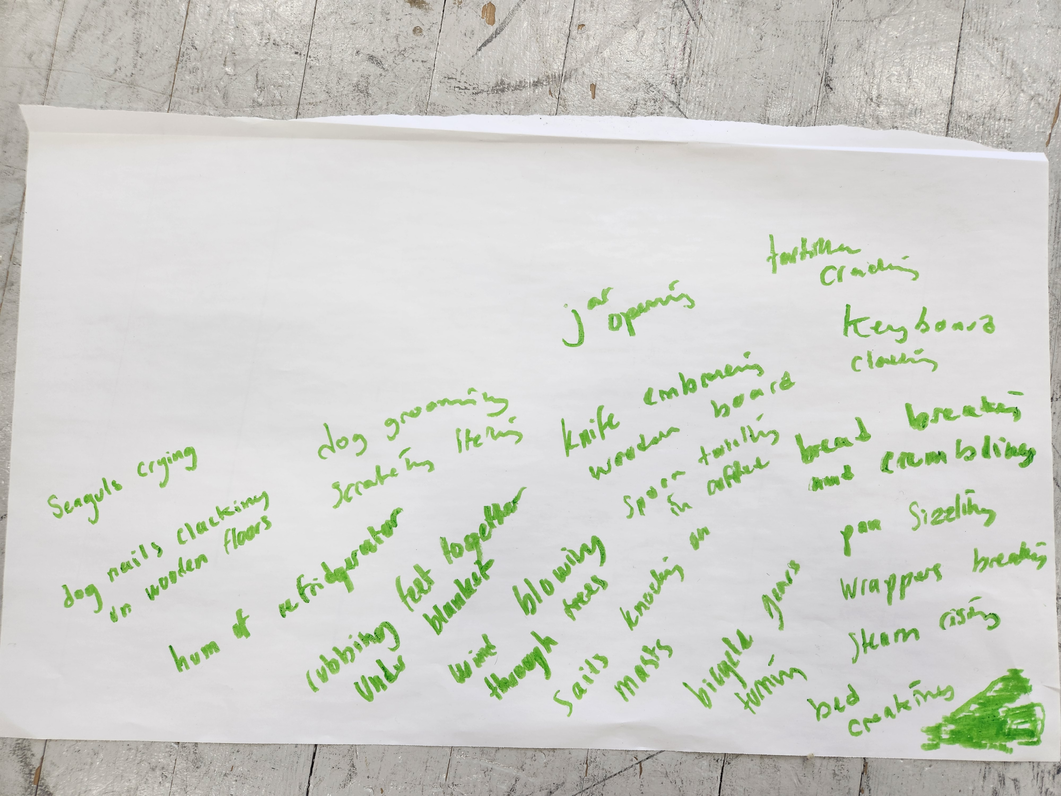 tortilla
cracking
jar
opening
Keyboard
clacking
dog grooming
scratching itching
knife embracing
wooden board
bread breaking
and crumbling
Seagulls crying
spoon twirling
in coffee
dog nails clacking
on wooden floors
pan Sizzling
hum of refridgerator
rubbing feet together
under blanket
wind blowing
through trees
Sails knocking on
masts
bicycle gears
turning
wrappers breaking
steam rising
bed
creaking